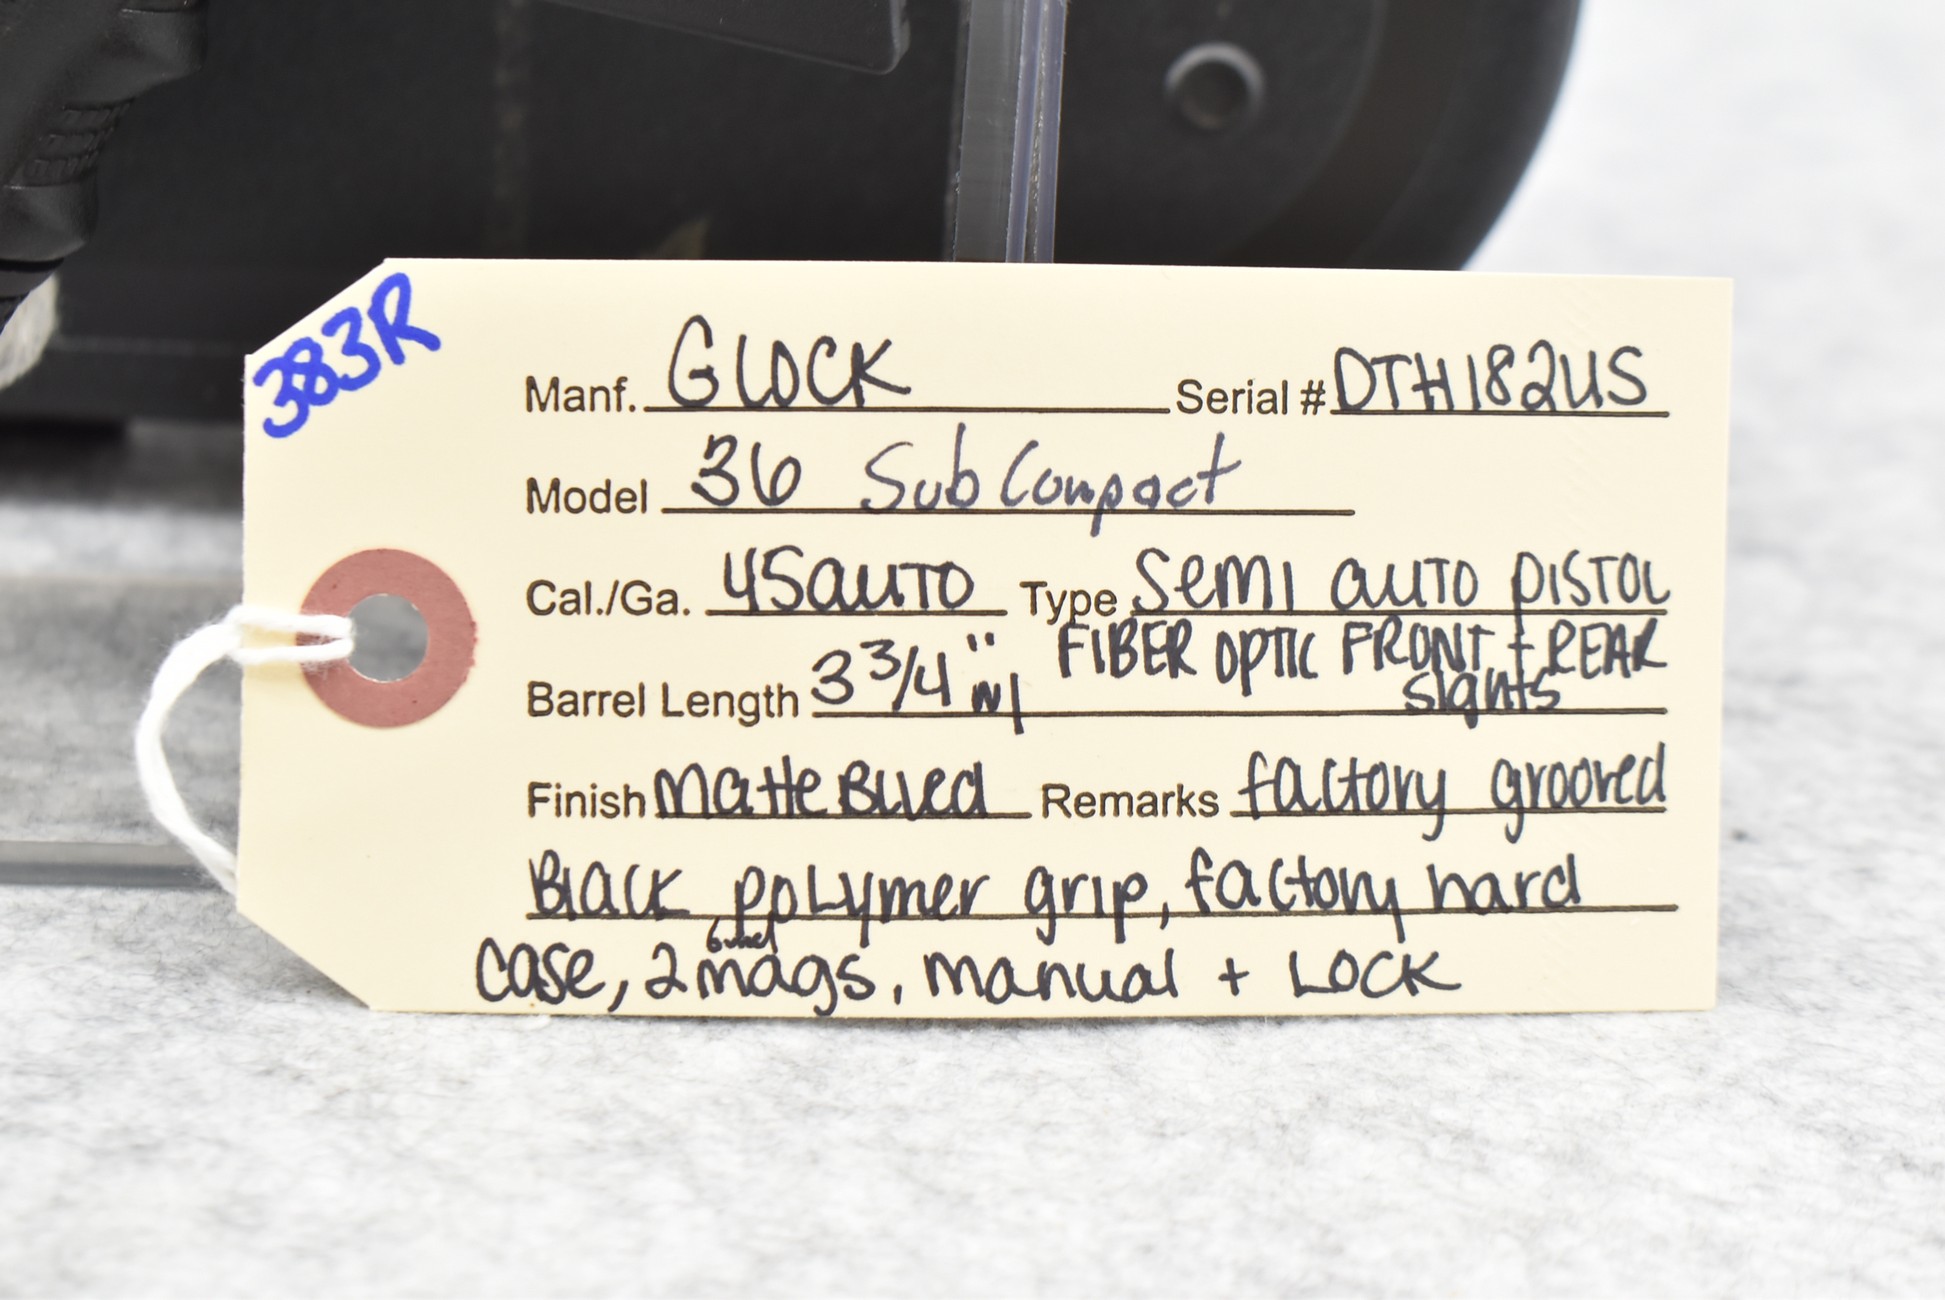 383R
Manf. GLOCK Serial # DTH182US
Model 36 Sub Compact
Cal./Ga. 45 auto Type Semi auto pistol
Barrel Length 3 3/4" w/ FIBER OPTIC FRONT + REAR
sights
Finish Matte Blued Remarks factory grooved
Black polymer grip, factory hard
case, 2 mags, manual + LOCK